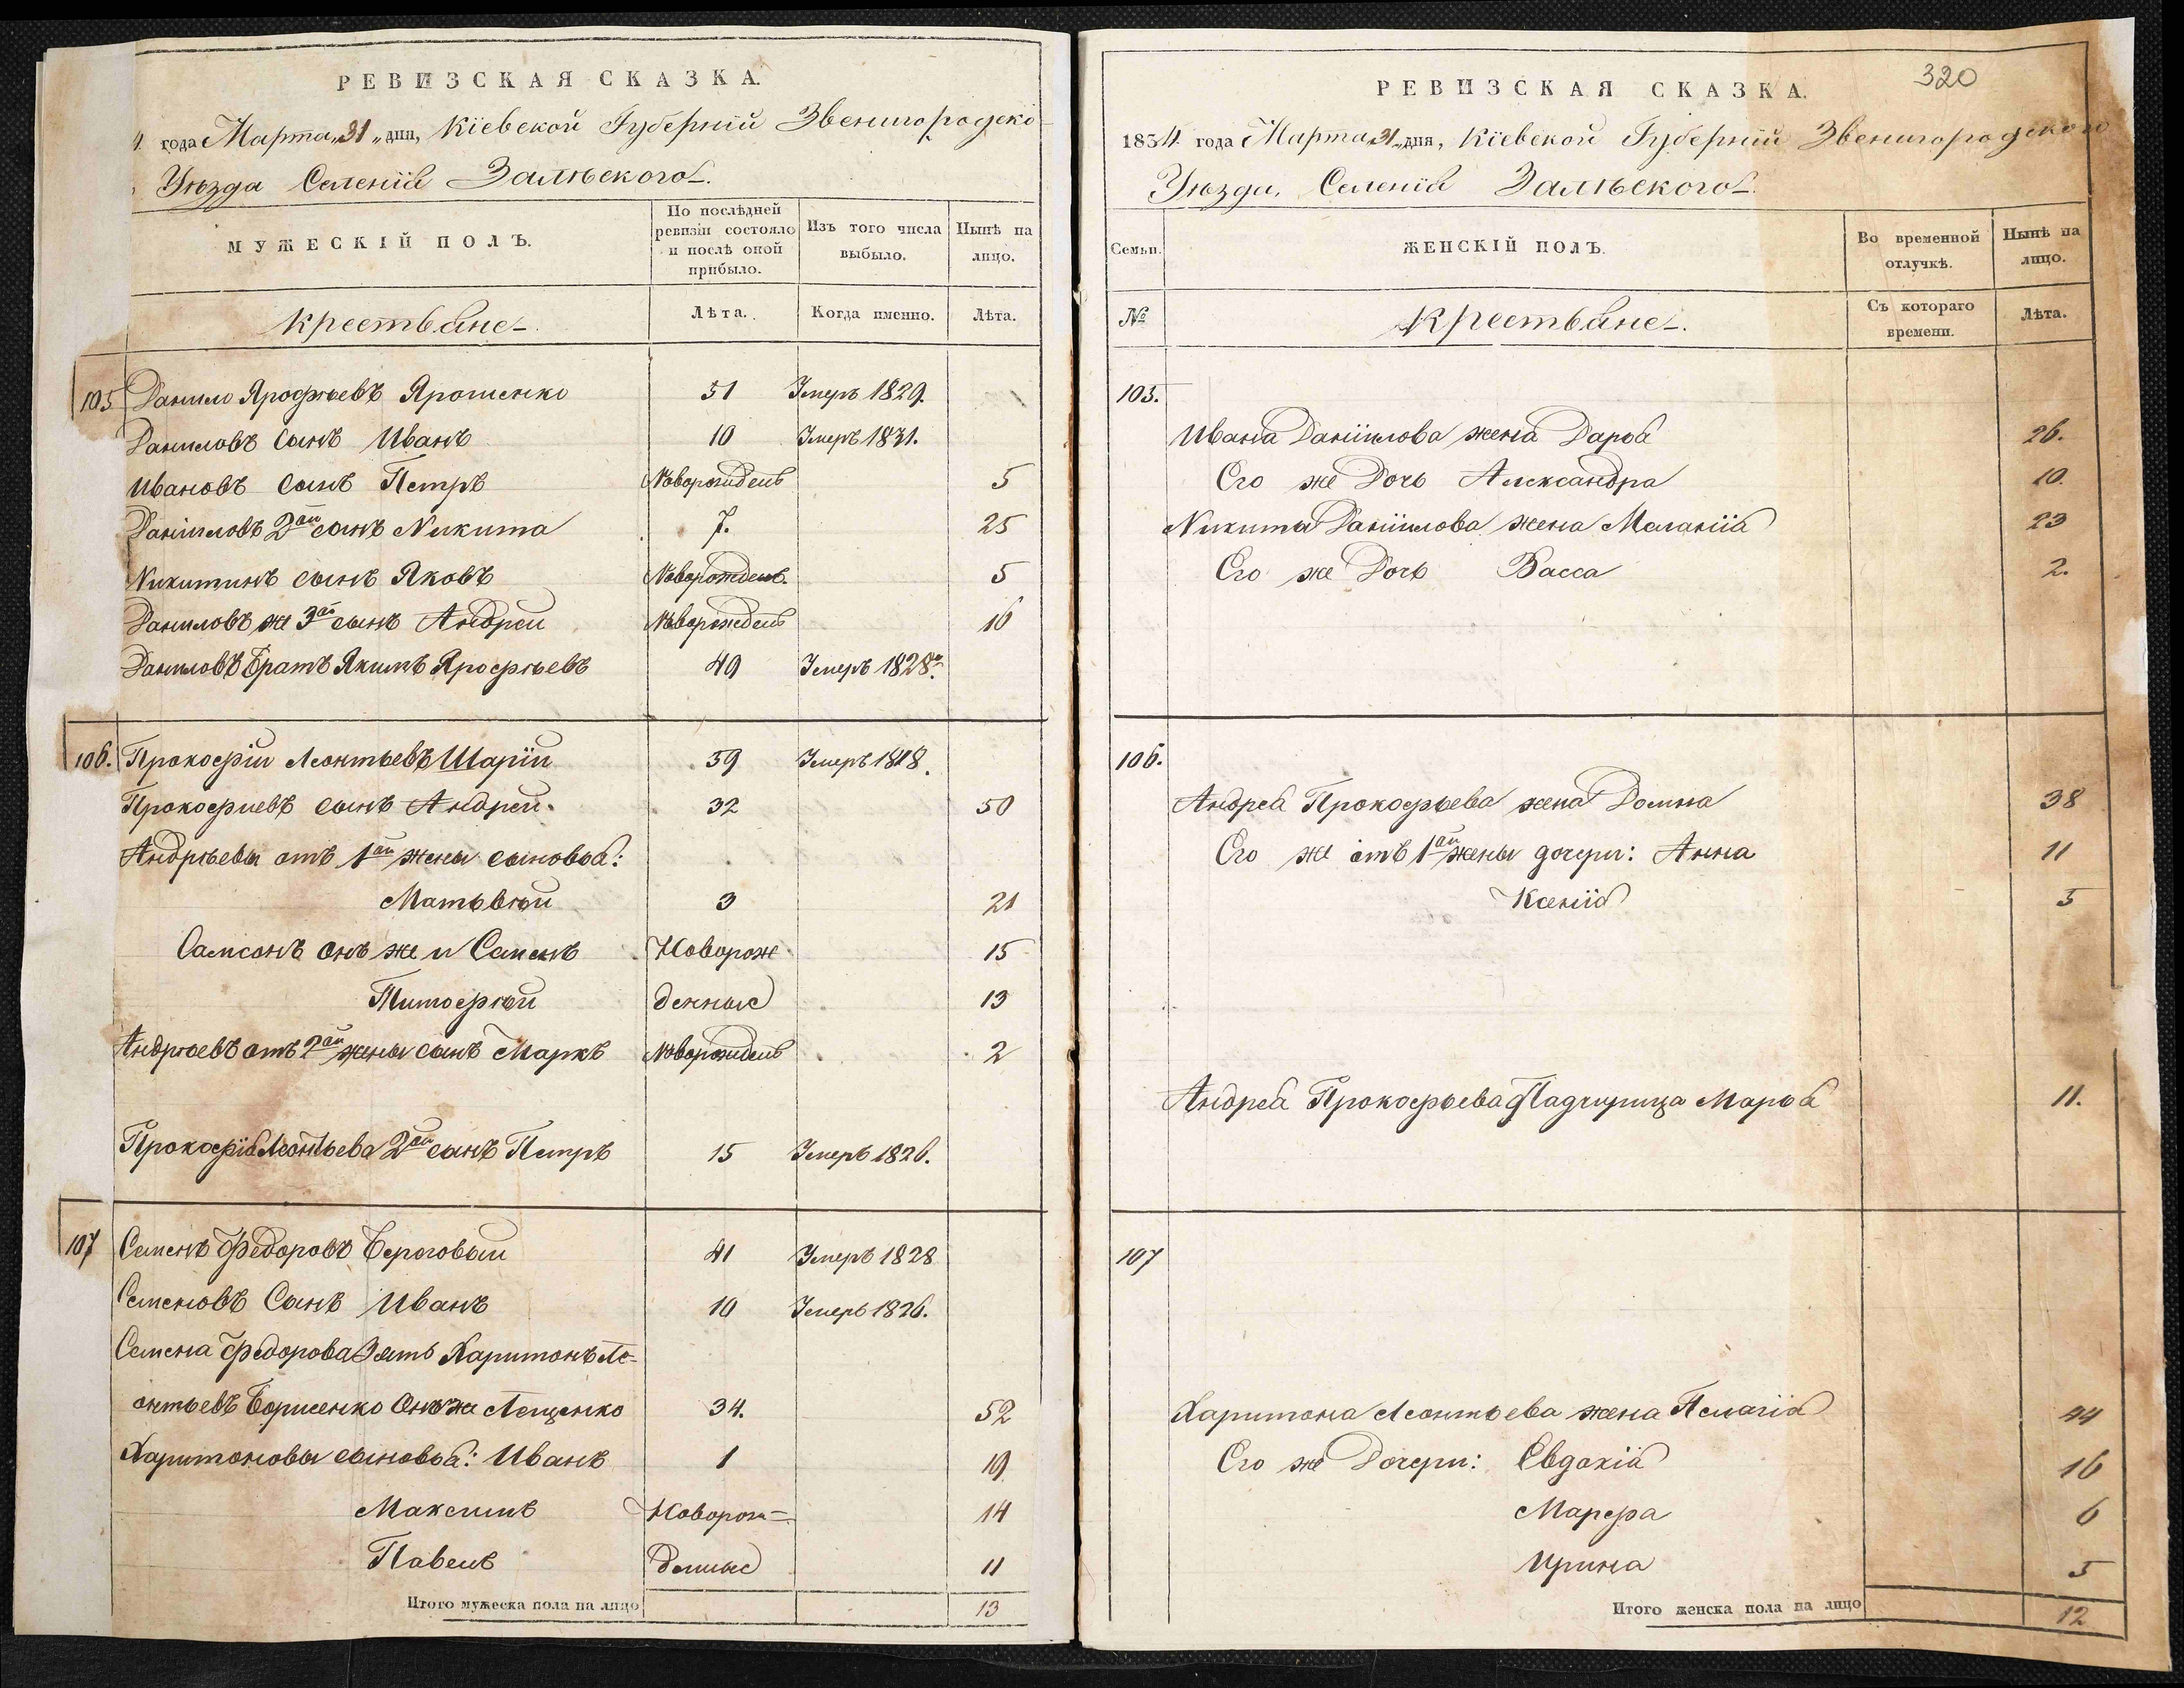 РЕВИЗСКАЯ СКАЗКА.
4. года Марта „31„ дня, Кіевской Губерніи Звенигородско
Уѣзда Селенія Залѣского
МУЖЕСКІЙ ПОЛЪ.
По послѣдней ревизіи состояло и послѣ оной прибыло.
Изъ того числа выбыло.
Нынѣ на лицо.
Крестьяне
Лѣта.
Когда именно.
Лѣта.
105 Данило Ярофѣевъ Ярошенко 51 Умеръ 1829.
Даниловъ Сынъ Иванъ 10 Умеръ 1831.
Ивановъ Сынъ Петръ Новорожденъ 5
Даніиловъ 2ой сынъ Никита 7. 25
Никитинъ сынъ Яковъ Новорожденъ 5
Даниловъ же 3ой сынъ Андрей Новорожденъ 16
Даниловъ Братъ Якимъ Ярофѣевъ 49 Умеръ 1828.
106. Прокофій Леонтьевъ Шарій 59 Умеръ 1818.
Прокофиевъ сынъ Андрей 32 50
Андрѣевы отъ 1ой жены сыновья:
Матьвѣй 3 21
Самсонъ онъ же и Семенъ Новорож 15
Тимофѣй денные 13
Андрѣевъ отъ 2ой жены сынъ Маркъ Новорожденъ 2
Прокофія Леонтьева 2ой сынъ Петръ 15 Умеръ 1826.
107 Семенъ Федоровъ Береговый 41 Умеръ 1828
Семеновъ Сынъ Иванъ 10 Умеръ 1826.
Семена Федорова Зять Харитонъ Ле-
онтьевъ Борисенко Онъ же Лещенко 34. 52
Харитоновы сыновья: Иванъ 1 19
Максимъ Новорож= 14
Павелъ денные 11
Итого мужеска пола на лицо 13
320
РЕВИЗСКАЯ СКАЗКА.
1834. года Марта „31„ дня, Кіевской Губерніи Звенигородского
Уѣзда, Селенія Залѣского
Семьи.
ЖЕНСКІЙ ПОЛЪ.
Во временной отлучкѣ.
Нынѣ на лицо.
№
Крестьяне.
Съ котораго времени.
Лѣта.
105.
Ивана Даніилова жена Дарья 26.
Его же Дочь Александра 10.
Никиты Даніилова жена Маланія 23
Его же Дочь Васса 2.
106.
Андрея Прокофьева жена Домна 38
Его же отъ 1ой жены дочери: Анна 11
Ксенія 5
Андрея Прокофьева Падчирица Марья 11.
107
Харитона Леонтьева жена Пелагія 44
Его же Дочери: Евдокія 16
Марфа 6
Ирина 5
Итого женска пола на лицо 12